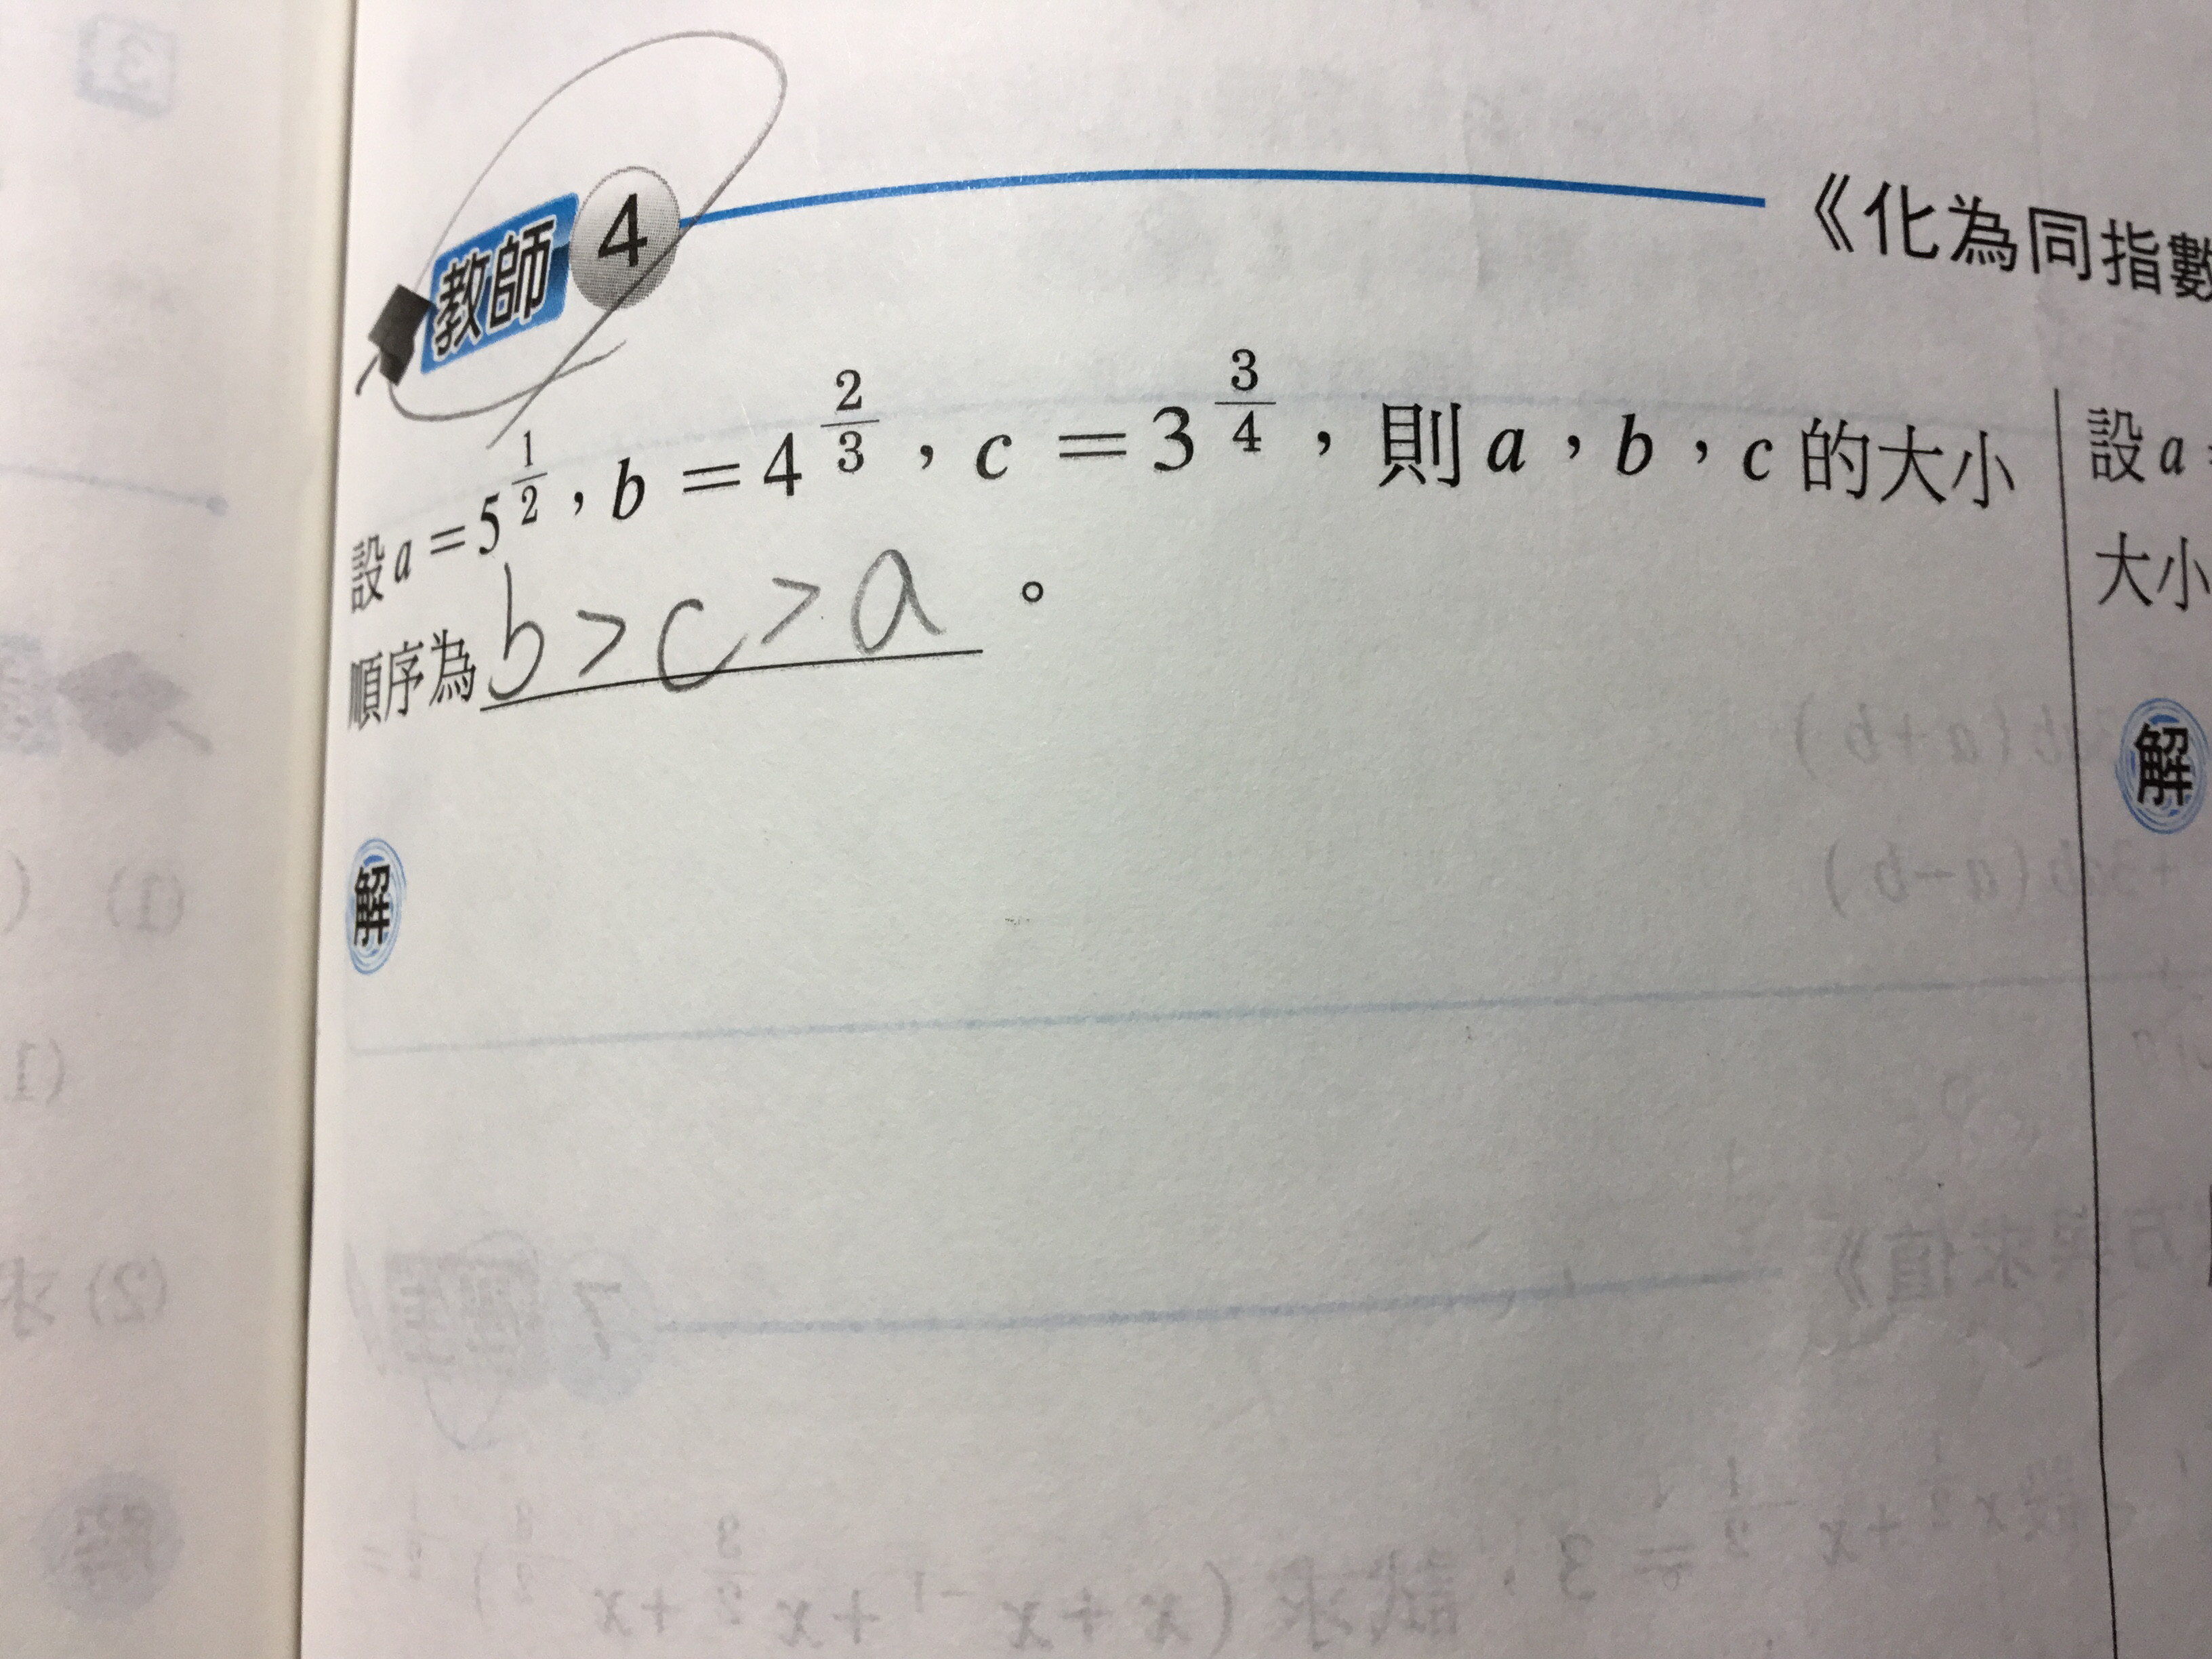 教師 4
《化為同指數
設 a = 5^{\frac{1}{2}}, b = 4^{\frac{2}{3}}, c = 3^{\frac{3}{4}}, 則 a, b, c 的大小
順序為 b > c > a 。
解
設 a
大小
解